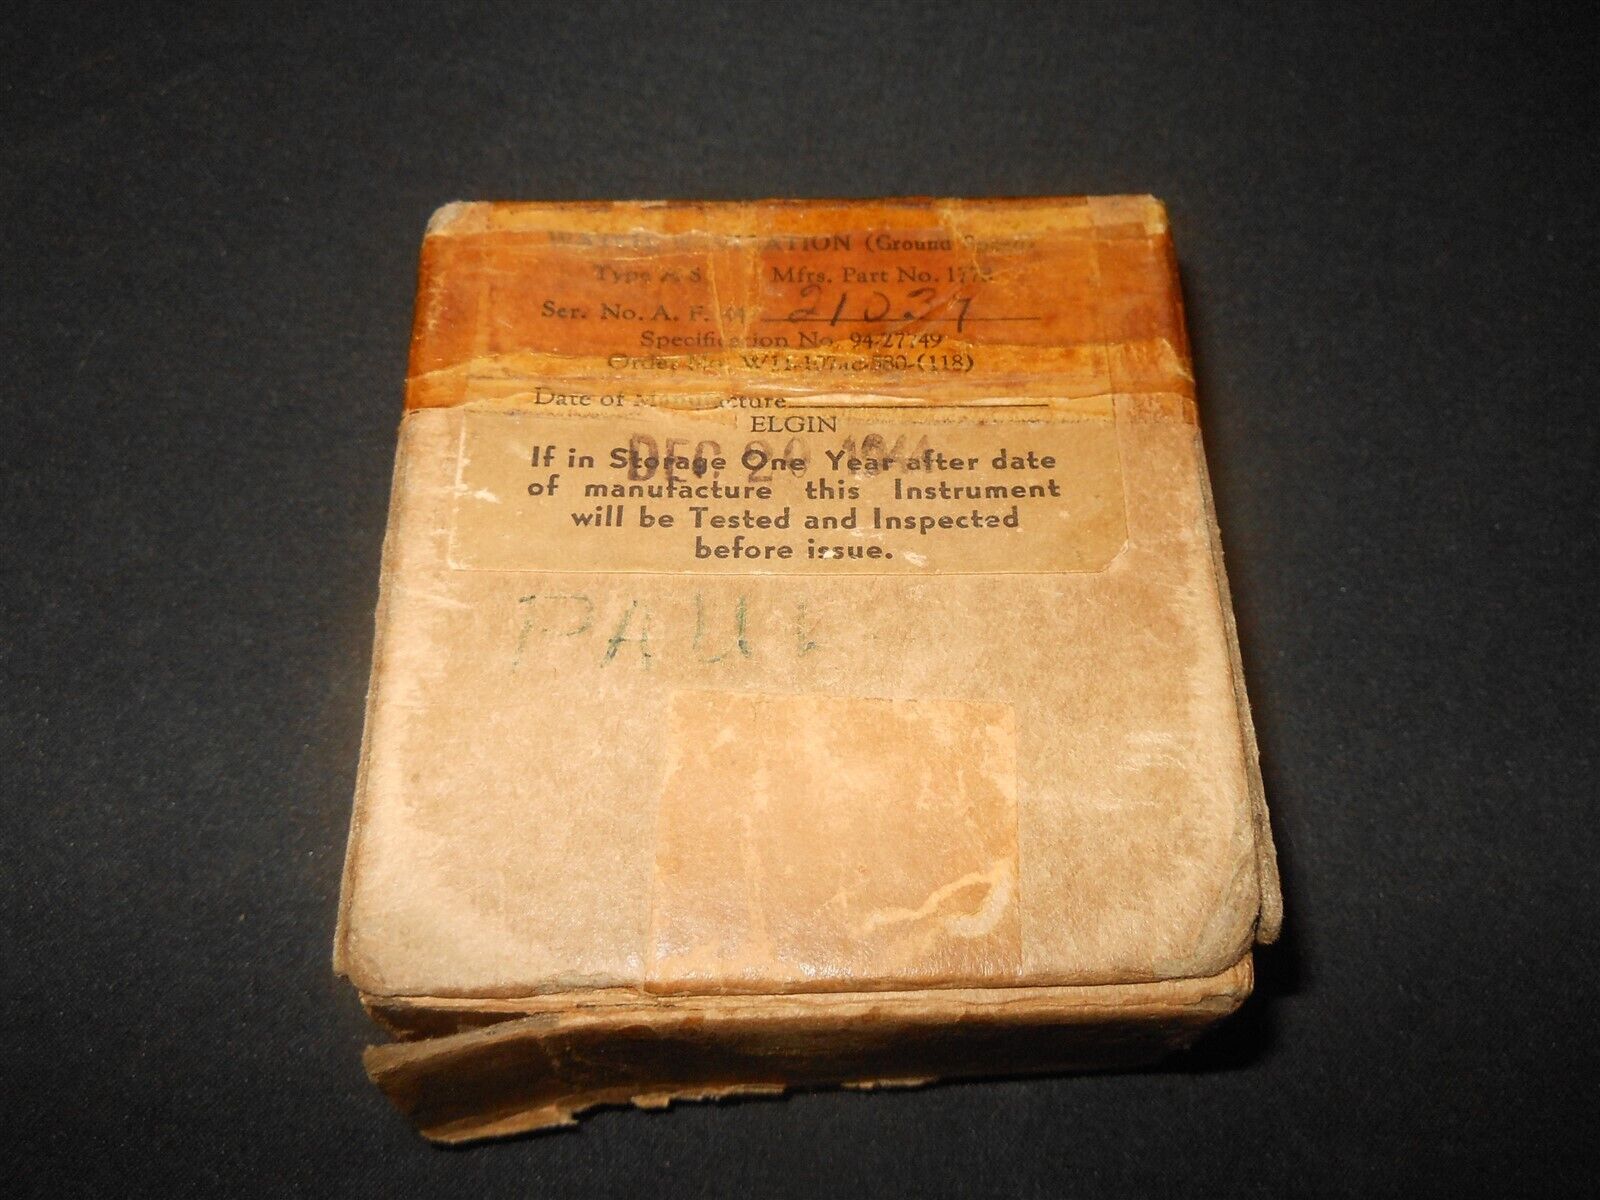 NAVIGATION (Ground Speed)
Type A-8 Mfrs. Part No. 1773
Ser. No. A. F. 44- 21037
Specification No. 94-27749
Order No. W11-107ac-580-(118)
Date of Manufacture
ELGIN
DEC 20 1944
If in Storage One Year after date
of manufacture this Instrument
will be Tested and Inspected
before issue.
PAUL